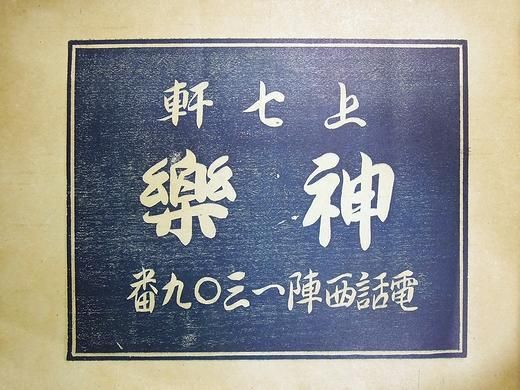 上七軒
神樂
電話西陣一三〇九番